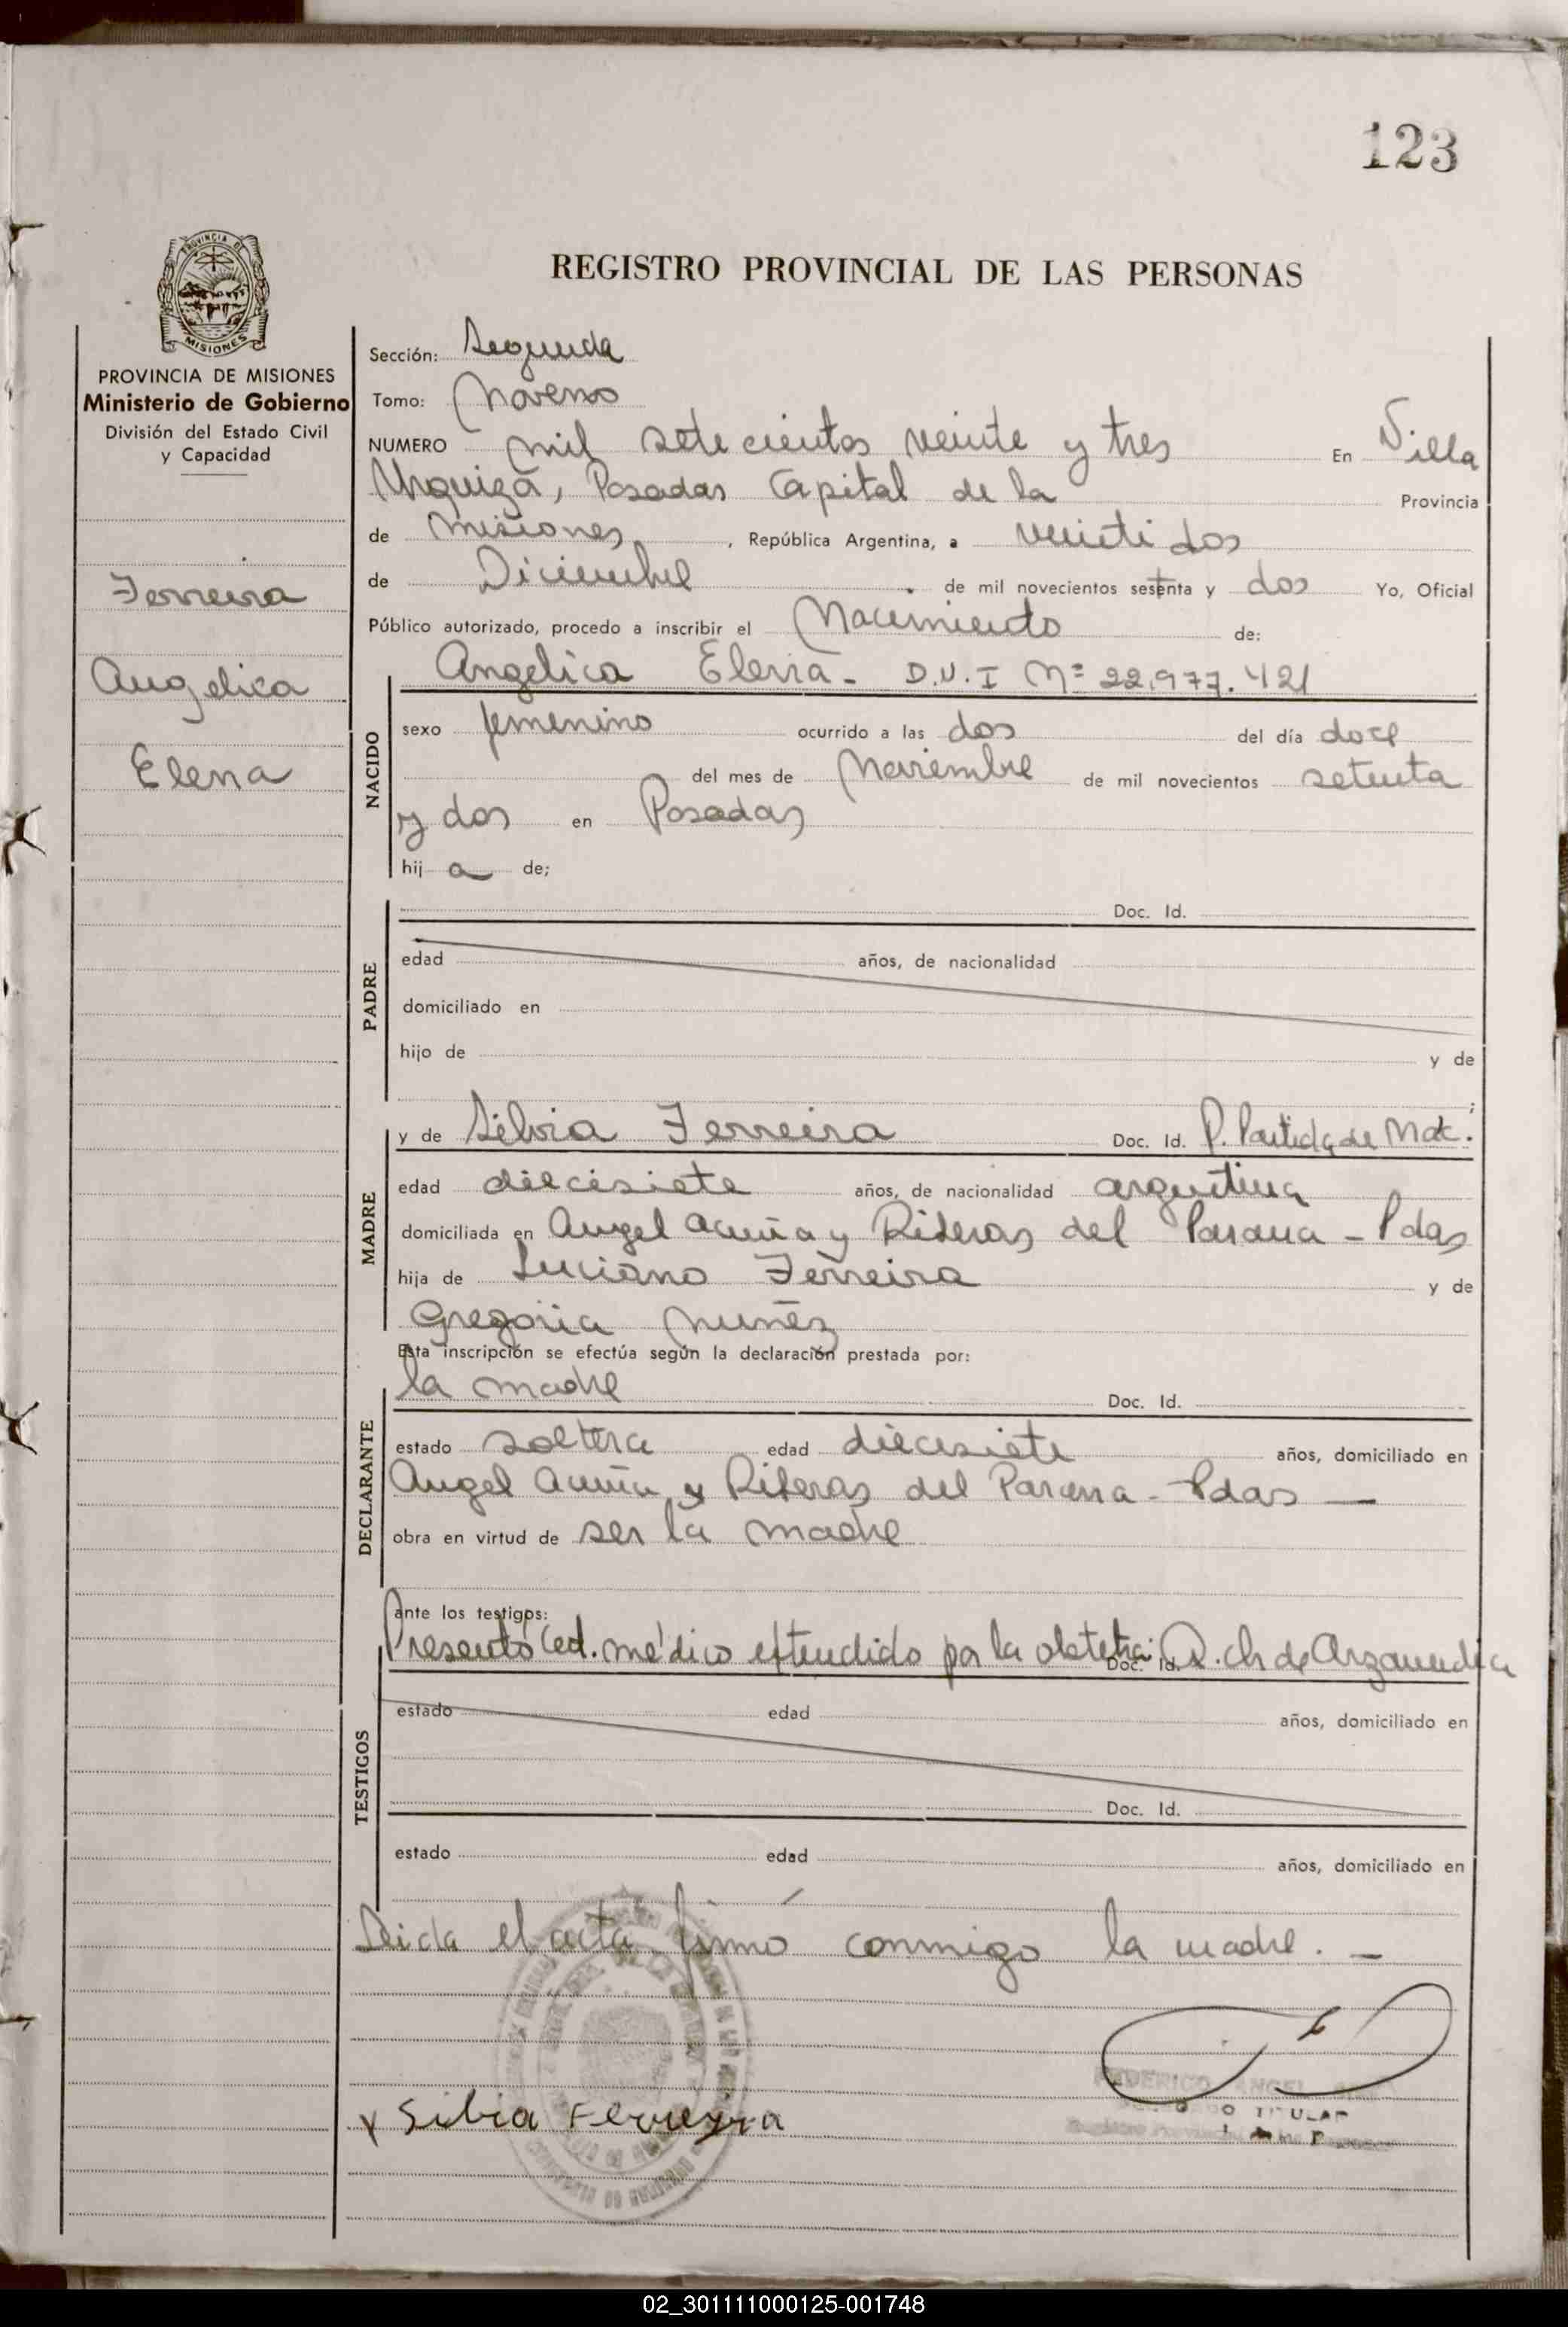 123
PROVINCIA DE
MISIONES
REGISTRO PROVINCIAL DE LAS PERSONAS
PROVINCIA DE MISIONES
Ministerio de Gobierno
División del Estado Civil
y Capacidad
Ferreira
Angelica
Elena
Sección: Segunda
Tomo: Noveno
NUMERO mil setecientos veinte y tres En Villa
Urquiza, Posadas Capital de la Provincia
de Misiones, República Argentina, a veinti dos
de Diciembre de mil novecientos sesenta y dos Yo, Oficial
Público autorizado, procedo a inscribir el Nacimiento de:
Angelica Elena - D.N.I Nº 22.977.421
NACIDO
sexo femenino ocurrido a las dos del día doce
del mes de Noviembre de mil novecientos setenta
y dos en Posadas
hij a de;
PADRE
Doc. Id.
edad años, de nacionalidad
domiciliado en
hijo de y de
;
MADRE
y de Silvia Ferreira Doc. Id. P. Partida de Nac.
edad diecisiete años, de nacionalidad argentina
domiciliada en Angel Acuña y Riberas del Parana - Pdas
hija de Luciano Ferreira y de
Gregoria Nuñez
Esta inscripción se efectúa según la declaración prestada por:
DECLARANTE
la madre Doc. Id.
estado soltera edad diecisiete años, domiciliado en
Angel Acuña y Riberas del Parana - Pdas —
obra en virtud de ser la madre
ante los testigos:
TESTIGOS
Presentó Ced. médico extendido por la obstetra: Doc. Id. Ch de Arzamendia
estado edad años, domiciliado en
Doc. Id.
estado edad años, domiciliado en
Leida el acta firmó conmigo la madre. —
FEDERICO ANGEL
TITULAR
x Silvia Ferreyra
02_301111000125-001748